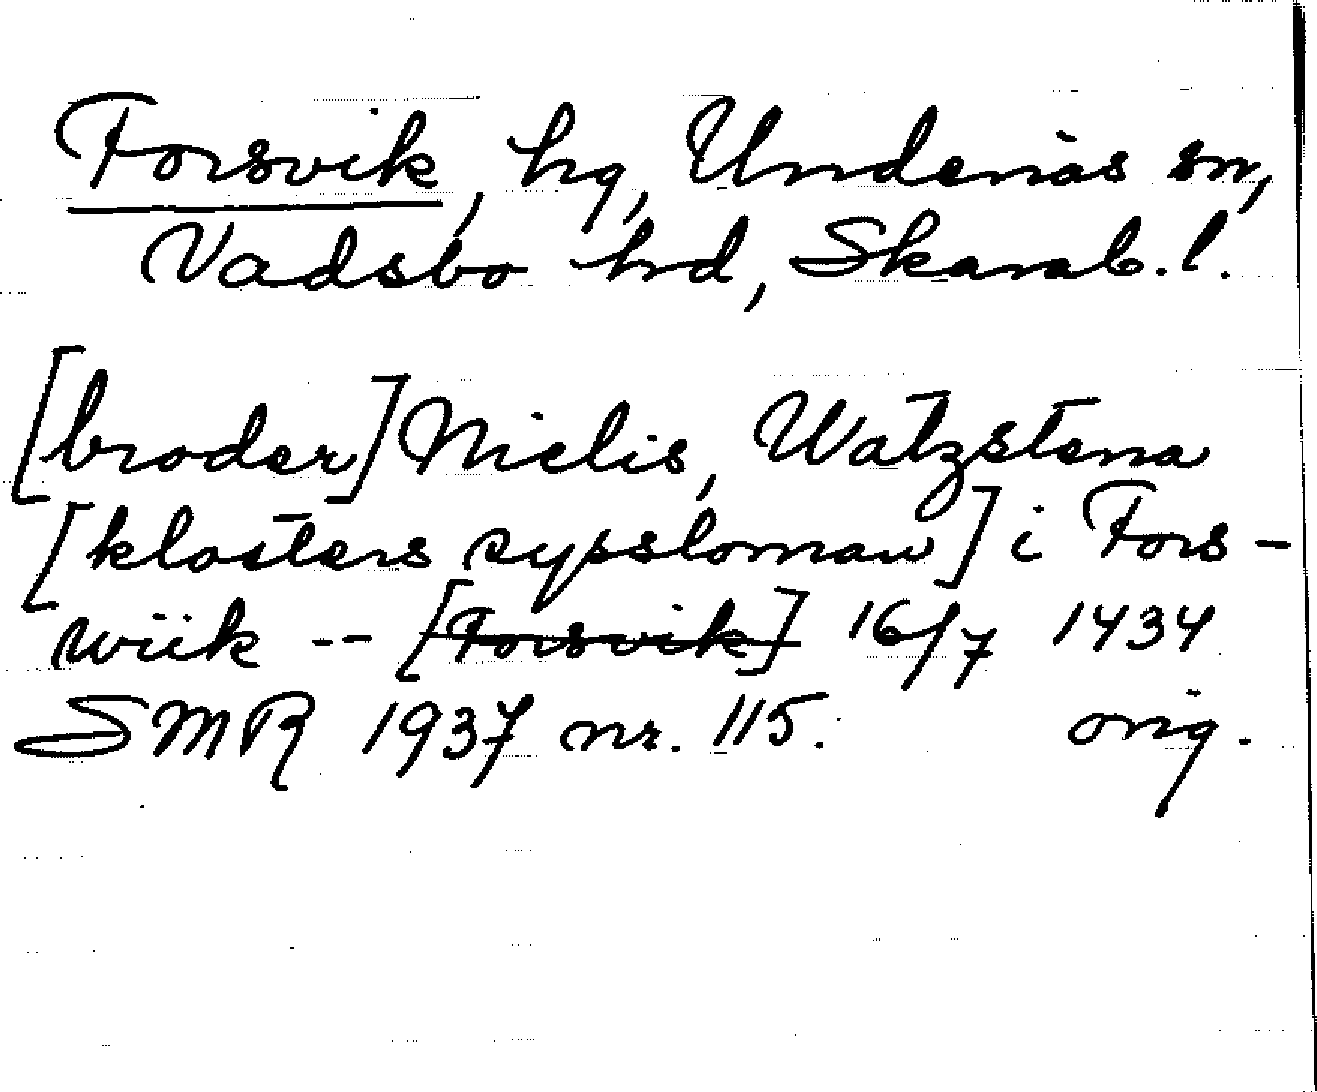 Forsvik, hg, Undenäs sn,
Vadsbo hd, Skarab. l.
[broder] Nielis, Watzstena
[klosters sypsloman] i Fors-
wiik -- [Forsvik] 16/7 1434
SMR 1937 nr. 115. orig.